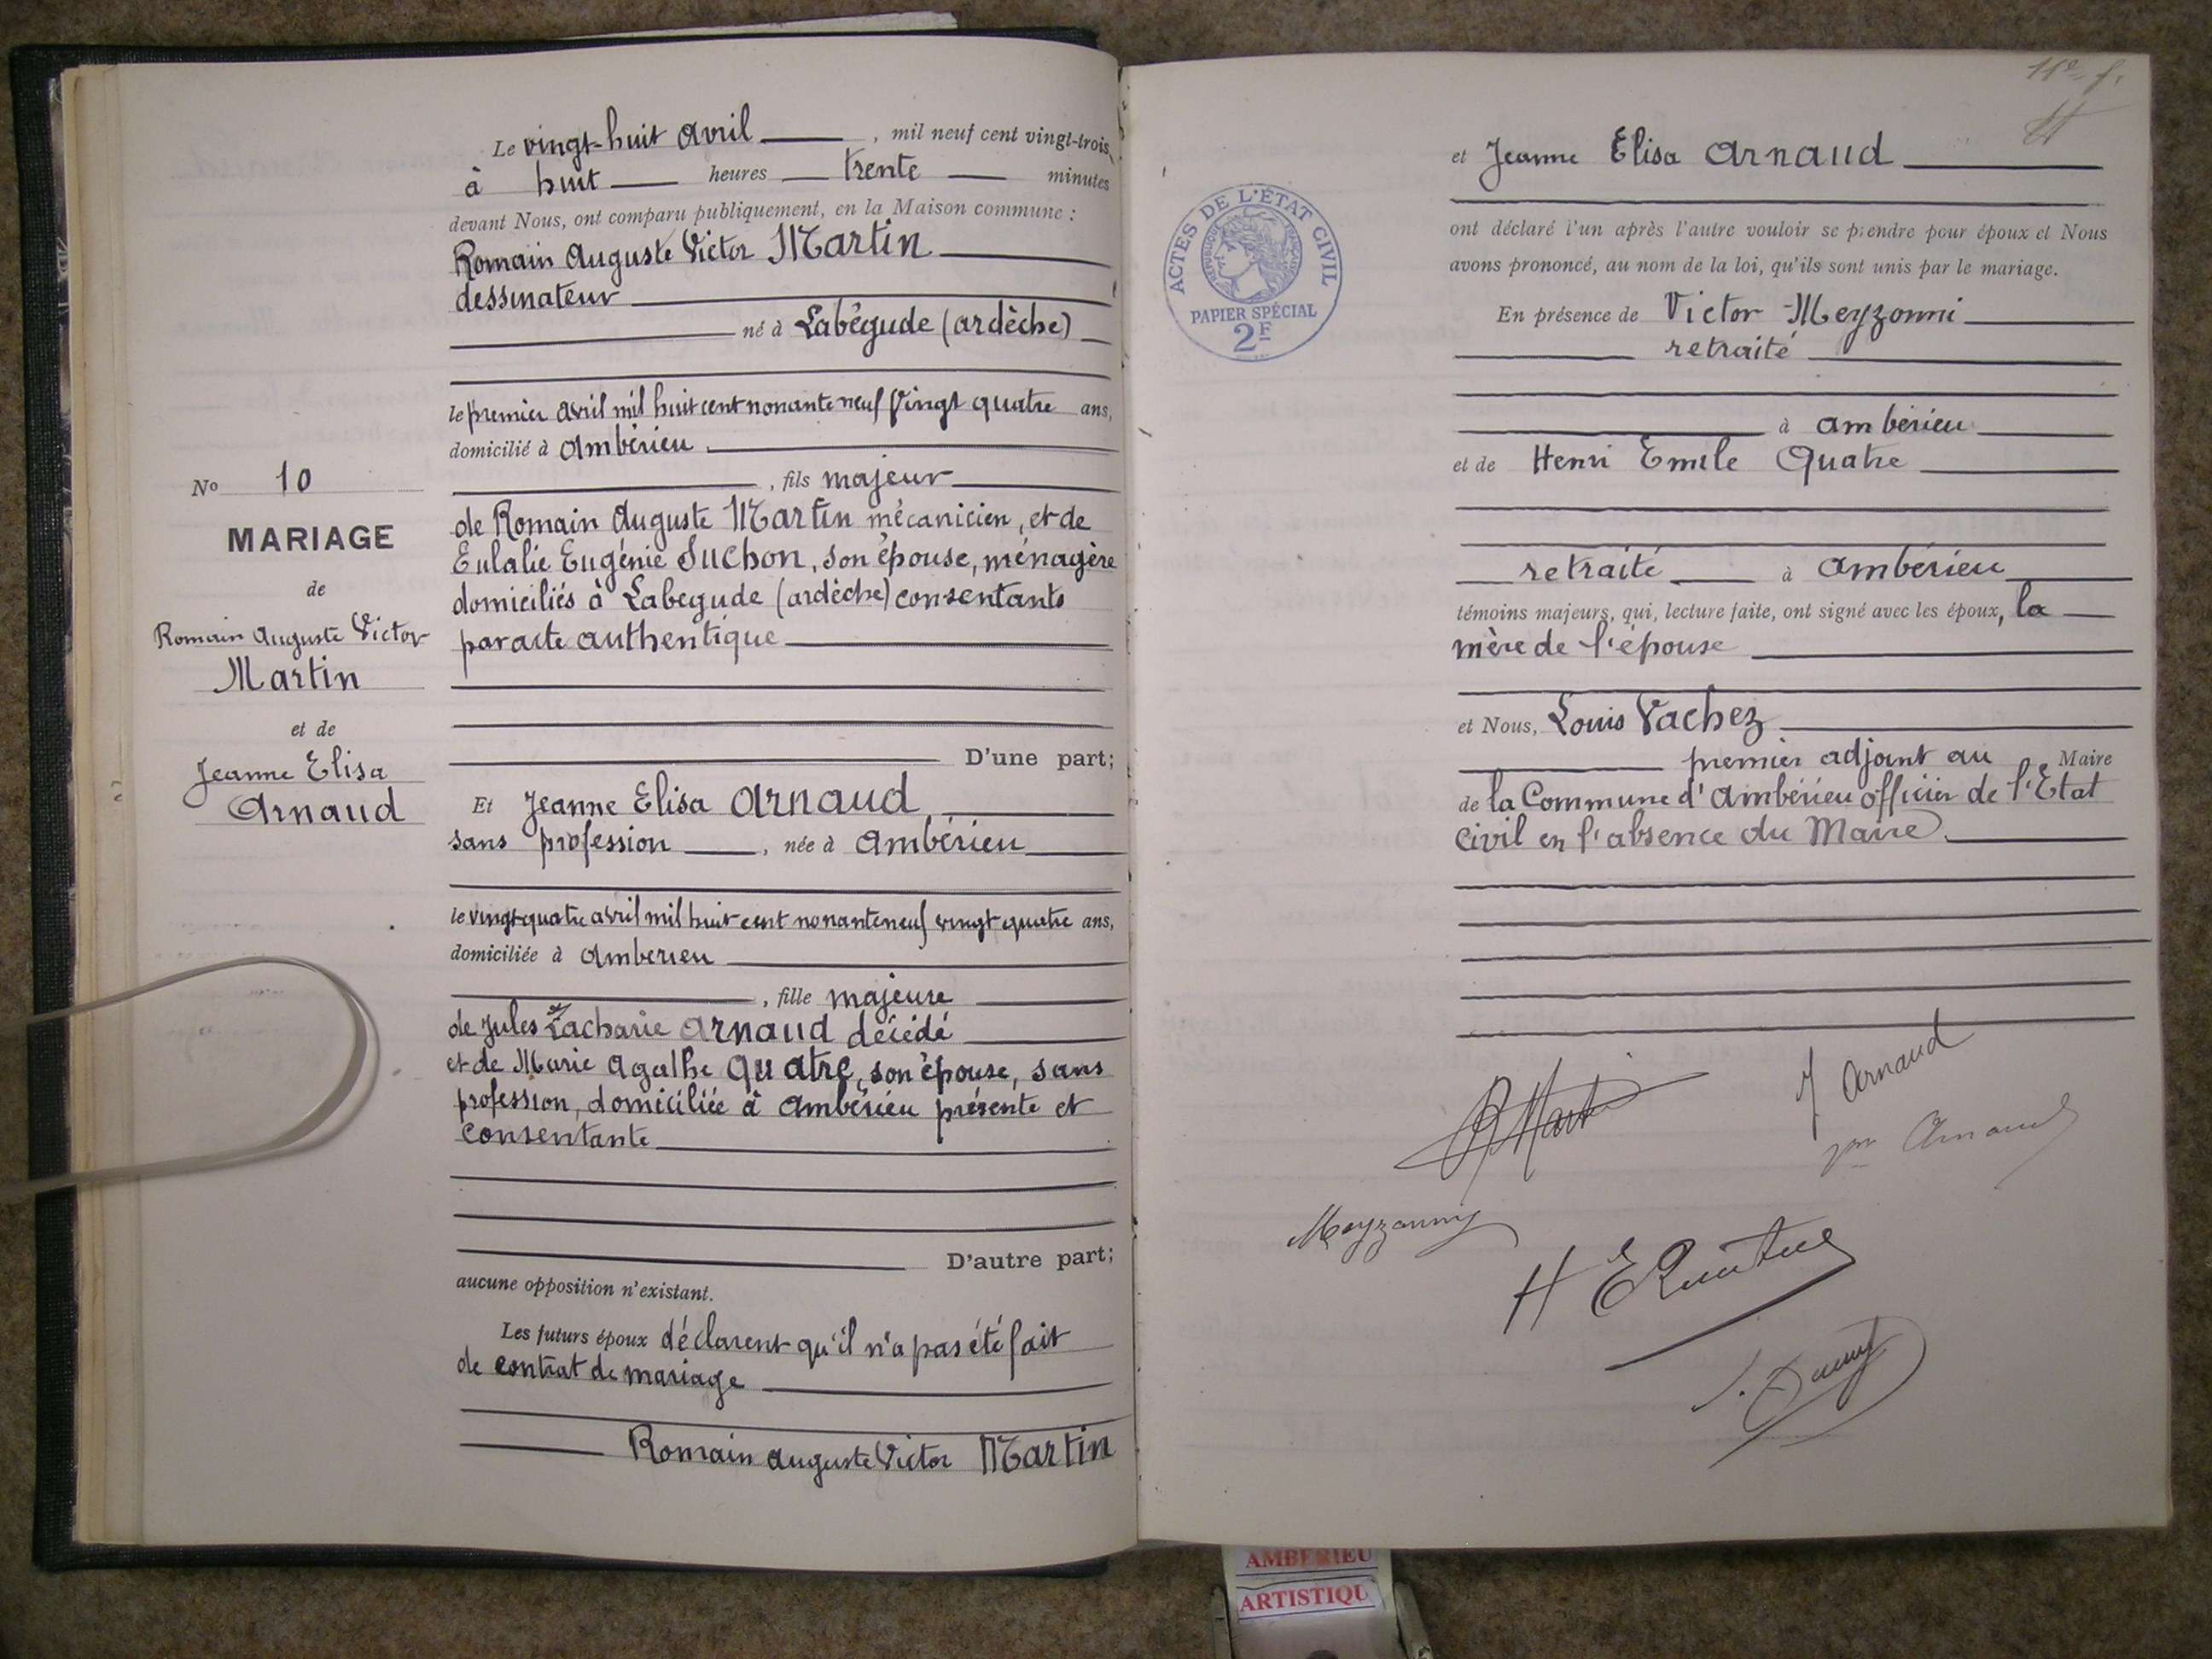 Le vingt-huit avril, mil neuf cent vingt-trois,
à huit heures trente minutes
devant Nous, ont comparu publiquement, en la Maison commune :
Romain Auguste Victor Martin
dessinateur
né à Labégude (ardèche)
le premier avril mil huit cent nonante neuf vingt quatre ans,
domicilié à Ambérieu
, fils majeur
de Romain Auguste Martin mécanicien, et de
Eulalie Eugénie Suchon, son épouse, ménagère
domiciliés à Labegude (ardèche) consentants
par acte authentique
D'une part;
Et Jeanne Elisa Arnaud
sans profession, née à Ambérieu
le vingt quatre avril mil huit cent nonante neuf vingt quatre ans,
domiciliée à Amberieu
, fille majeure
de Jules Zacharie Arnaud décédé
et de Marie Agathe Quatre, son épouse, sans
profession, domiciliée à Ambérieu présente et
consentante
D'autre part;
aucune opposition n'existant.
Les futurs époux déclarent qu'il n'a pas été fait
de contrat de mariage
Romain Auguste Victor Martin
No 10
MARIAGE
de
Romain Auguste Victor
Martin
et de
Jeanne Elisa
Arnaud
11e f.
et Jeanne Elisa Arnaud
ont déclaré l'un après l'autre vouloir se prendre pour époux et Nous
avons prononcé, au nom de la loi, qu'ils sont unis par le mariage.
En présence de Victor Meyzonni
retraité
à Ambérieu
et de Henri Emile Quatre
retraité à Ambérieu
témoins majeurs, qui, lecture faite, ont signé avec les époux, la
mère de l'épouse
et Nous, Louis Vachez
premier adjoint au Maire
de la Commune d'Ambérieu officier de l'Etat
Civil en l'absence du Maire
ACTES DE L'ÉTAT CIVIL
RÉPUBLIQUE FRANÇAISE
PAPIER SPÉCIAL
2F
R Martin
J Arnaud
Arnaud
Meyzonny
H E Quatre
AMBERIEU
ARTISTIQU